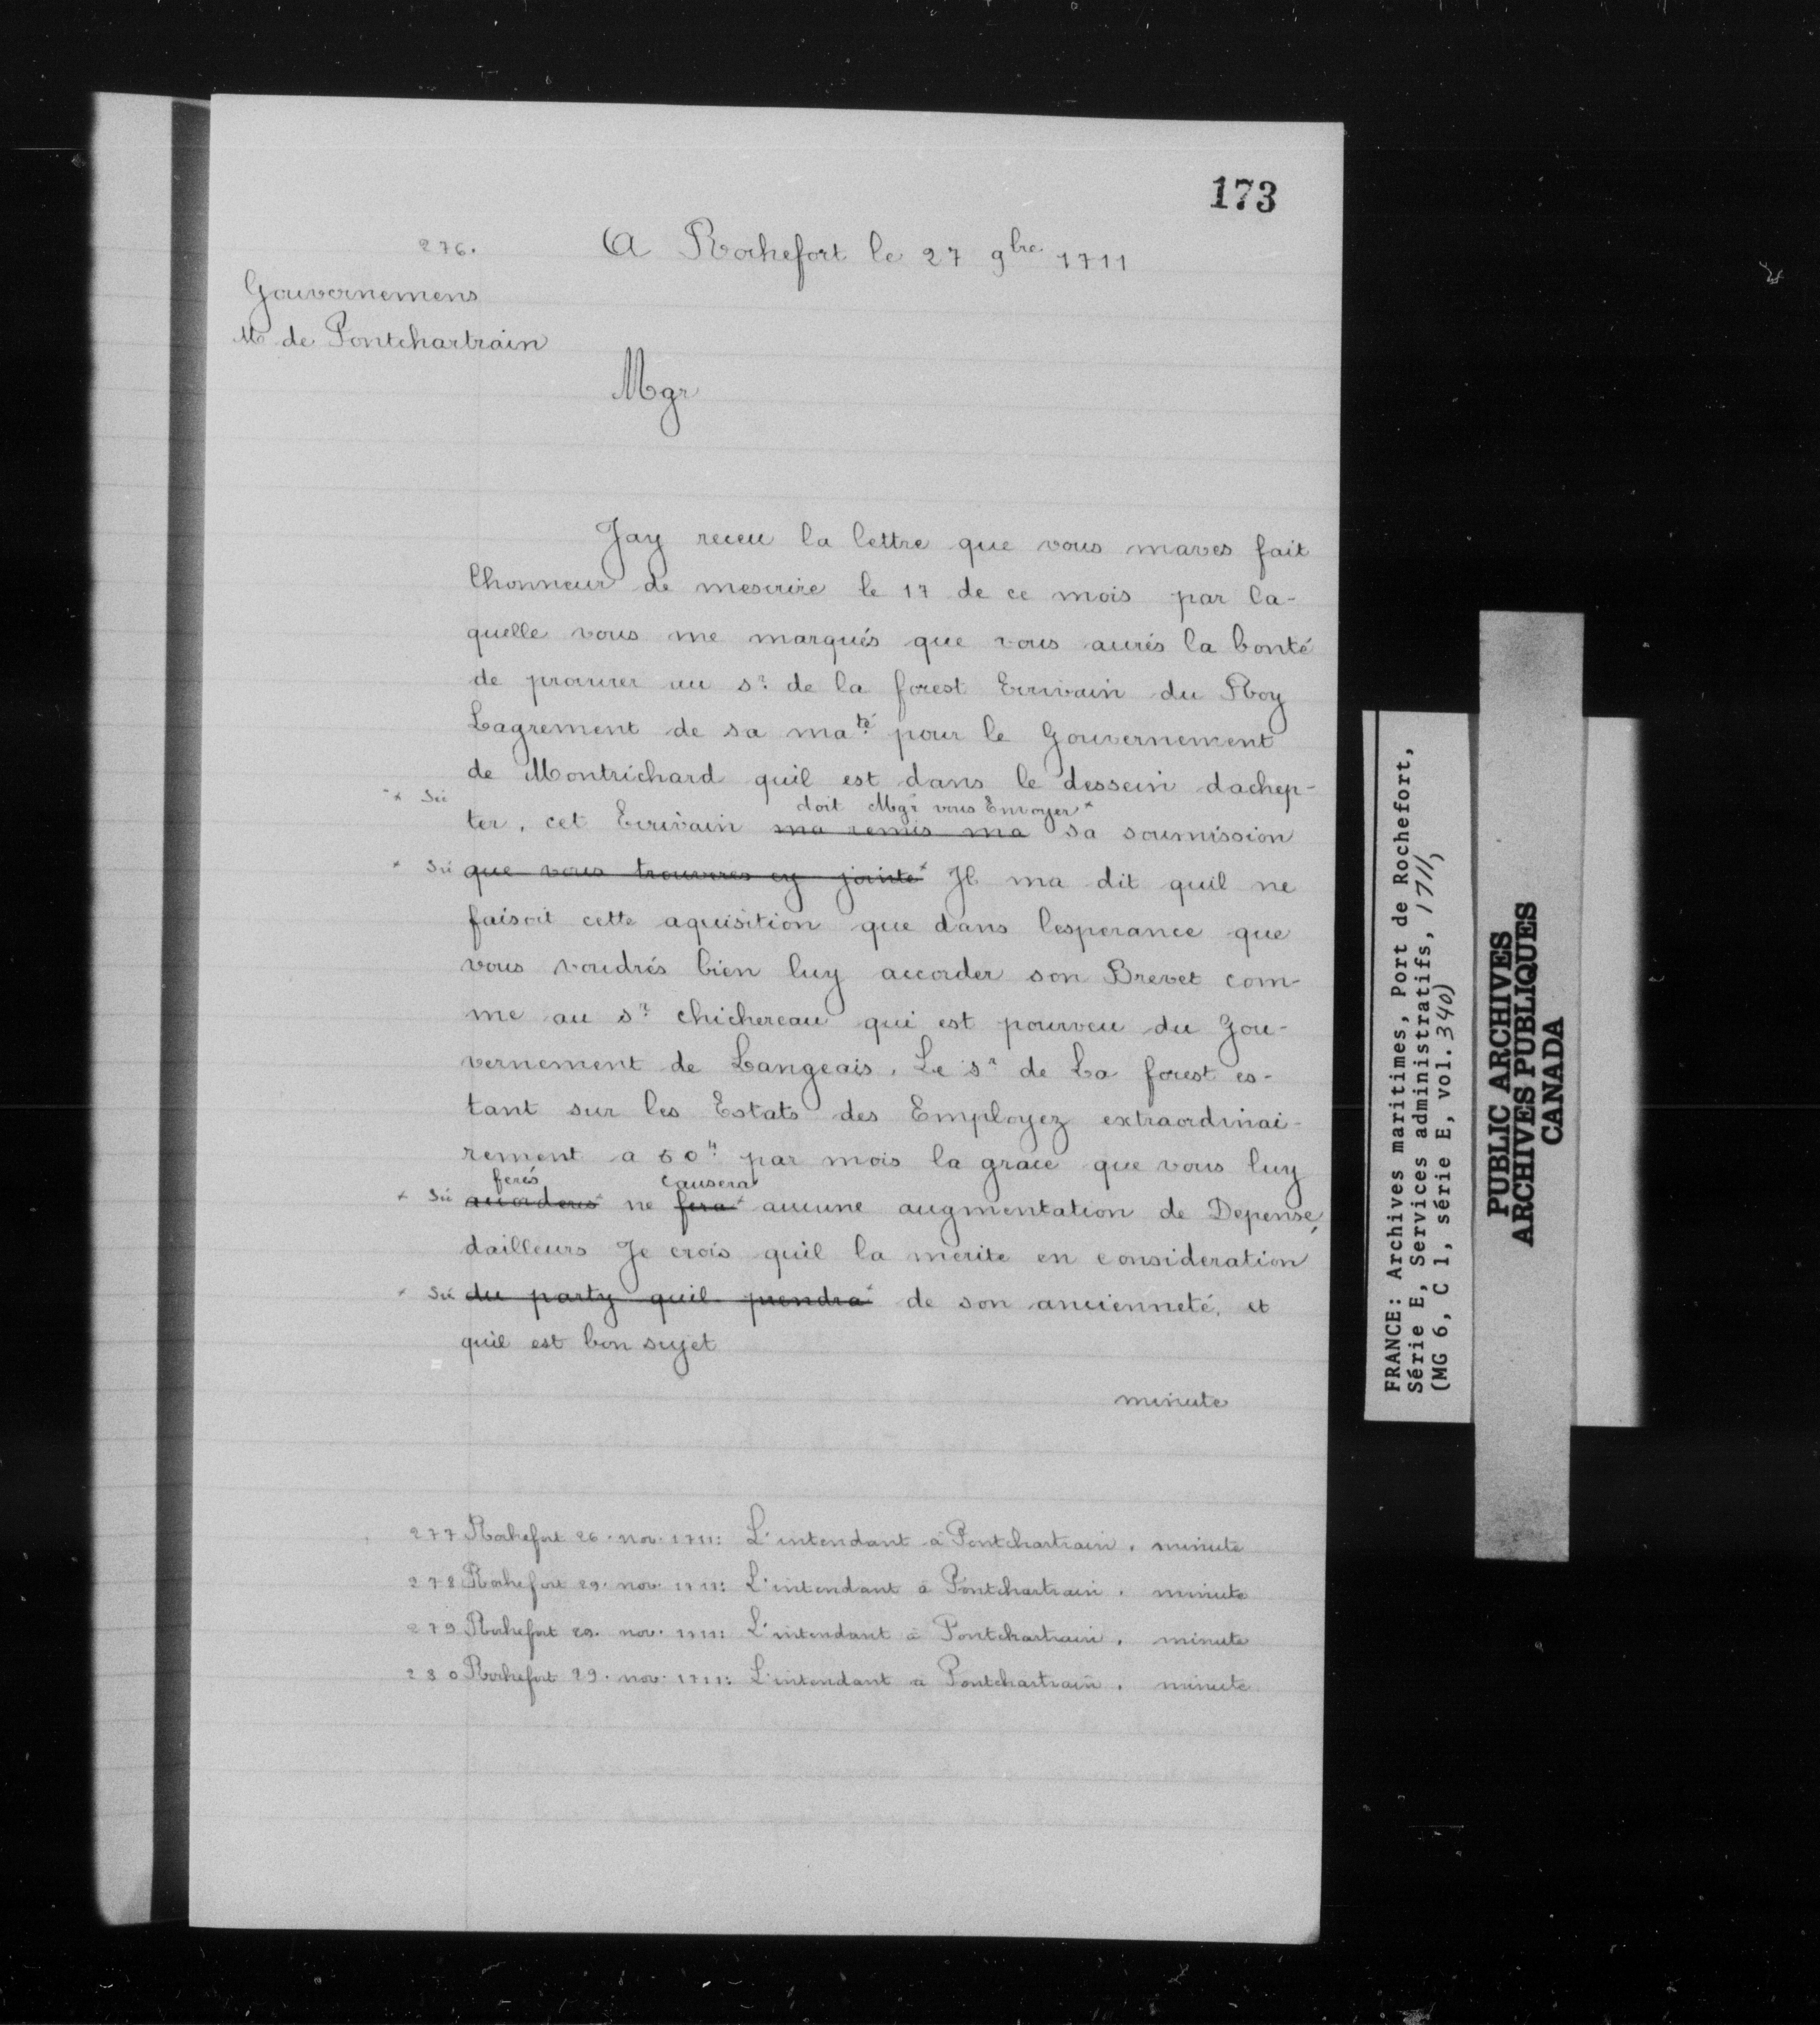 173
276.
A Rochefort le 27 9bre 1711
Gouvernemens
M de Pontchartrain
Mgr
Jay receu la lettre que vous maves fait
lhonneur de mescrire le 17 de ce mois par la-
quelle vous me marqués que vous aurés la bonté
de procurer au sr de la forest Ecrivain du Roy
Lagrement de sa maté pour le Gouvernement
de Montrichard quil est dans le dessein dachep-
x Sic
doit Mgr vous Envoyer x
ter, cet Ecrivain ma remis ma sa soumission
x Sic que vous trouveres cy jointe x Il ma dit quil ne
faisoit cette aquisition que dans lesperance que
vous voudrés bien luy accorder son Brevet com-
me au sr chichereau qui est pourveu du Gou-
vernement de Langeais. Le sr de La forest es-
tant sur les Estats des Employez extraordinai-
rement a 50tt par mois la grace que vous luy
ferés causera
x Sic accorderes x ne fera x aucune augmentation de Depense,
dailleurs Je crois quil la merite en consideration
x Sic du party quil prendra x de son ancienneté, et
quil est bon sujet
minute
277 Rochefort 26. nov. 1711: L'intendant à Pontchartrain. minute
278 Rochefort 29. nov. 1711: L'intendant à Pontchartrain. minute
279 Rochefort 29. nov. 1711: L'intendant à Pontchartrain. minute
280 Rochefort 29. nov. 1711: L'intendant à Pontchartrain. minute
FRANCE: Archives maritimes, Port de Rochefort,
Série E, Services administratifs, 1711,
(MG 6, C 1, série E, vol. 340)
PUBLIC ARCHIVES
ARCHIVES PUBLIQUES
CANADA